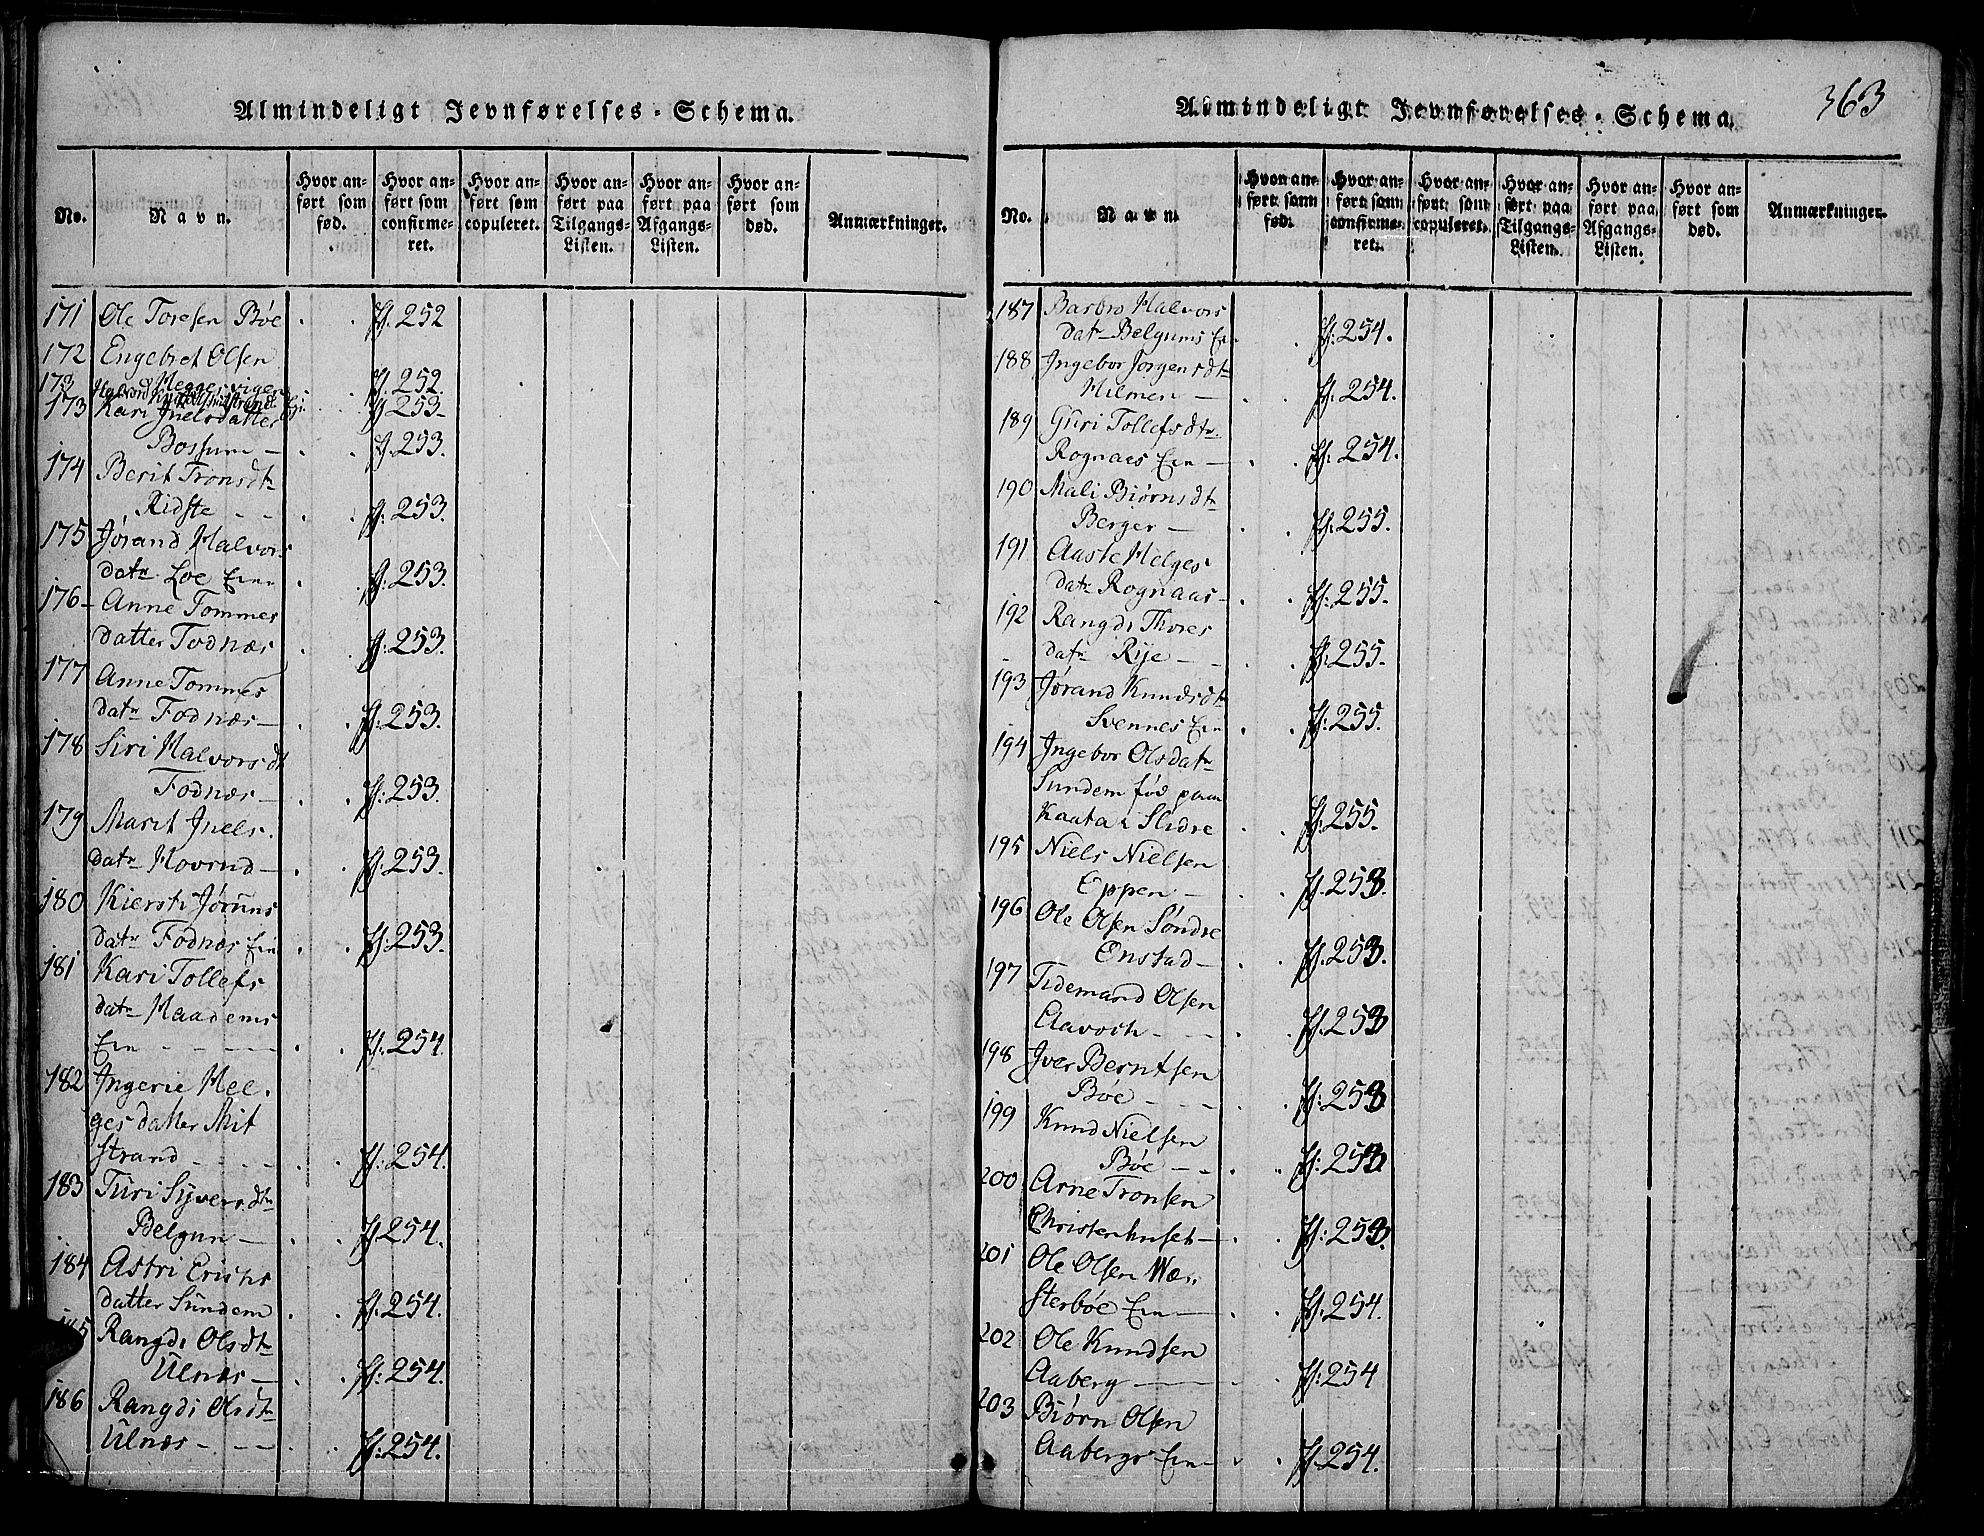 Almindeligt Jevnførelses-Schema.
No.
Navn.
Hvor anført som fød.
Hvor anført som confirmeret.
Hvor anført som copuleret.
Hvor anført paa Tilgangs-Listen.
Hvor anført paa Afgangs-Listen.
Hvor anført som død.
Anmærkninger.
171 Ole Toresen Bøe f. 252
172 Engebret Olsen
Heggesvigen f. 252
173 Halvord f. 253
173 Kari Juelsdatter
Bossum f. 253.
174 Berit Tronsdtr
Ridste f. 253.
175 Jørand Halvors
datr Loe Eie f. 253.
176 Anne Tommes
datter Fodnæs f. 253.
177 Anne Tommes
datr Fodnæs f. 253.
178 Siri Halvorsdt
Fodnæs f. 253.
179 Marit Juels
datr Hovrud f. 253.
180 Kiersti Jøruns
datr Fodnæs Eie f. 253.
181 Kari Tollefs
datr Haadems
Eie f. 254.
182 Ingerie Hel-
gesdatter Mit
strand f. 254.
183 Turi Syversdtr
Belgum f. 254.
184 Astri Erichs
datter Sundem f. 254.
185 Rangdi Olsdtr
Ulnæs f. 254.
186 Rangdi Olsdtr
Ulnæs f. 254.
Almindeligt Jevnførelses-Schema.
363
No.
Navn.
Hvor anført som fød.
Hvor anført som confirmeret.
Hvor anført som copuleret.
Hvor anført paa Tilgangs-Listen.
Hvor anført paa Afgangs-Listen.
Hvor anført som død.
Anmærkninger.
187 Barbro Halvors
datr Belgums Eie f. 254.
188 Ingebor Jorgensdtr
Hilmen f. 254.
189 Guri Tollefsdtr
Rognaes Eie f. 254.
190 Mali Biørnsdtr
Berger f. 255.
191 Aaste Helges
datr Rognaas f. 255.
192 Rangdi Thores
datr Rije f. 255.
193 Jørand Knudsdtr
Svennes Eie f. 255.
194 Ingebor Olsdatr
Sundem fød paa
Kaata i Slidre f. 255.
195 Niels Nielsen
Eppen f. 253.
196 Ole Olsen Søndre
Enstad f. 253.
197 Tidemand Olsen
f. 253
198 Iver Berntsen
Bøe f. 253
199 Knud Nielsen
Bøe f. 253
200 Arne Tronsen
Christenhuset f. 253.
201 Ole Olsen Wæ-
sterbøe Eie f. 254.
202 Ole Knudsen
Aaberg f. 254
203 Biørn Olsen
Aabergs Eie f. 254.